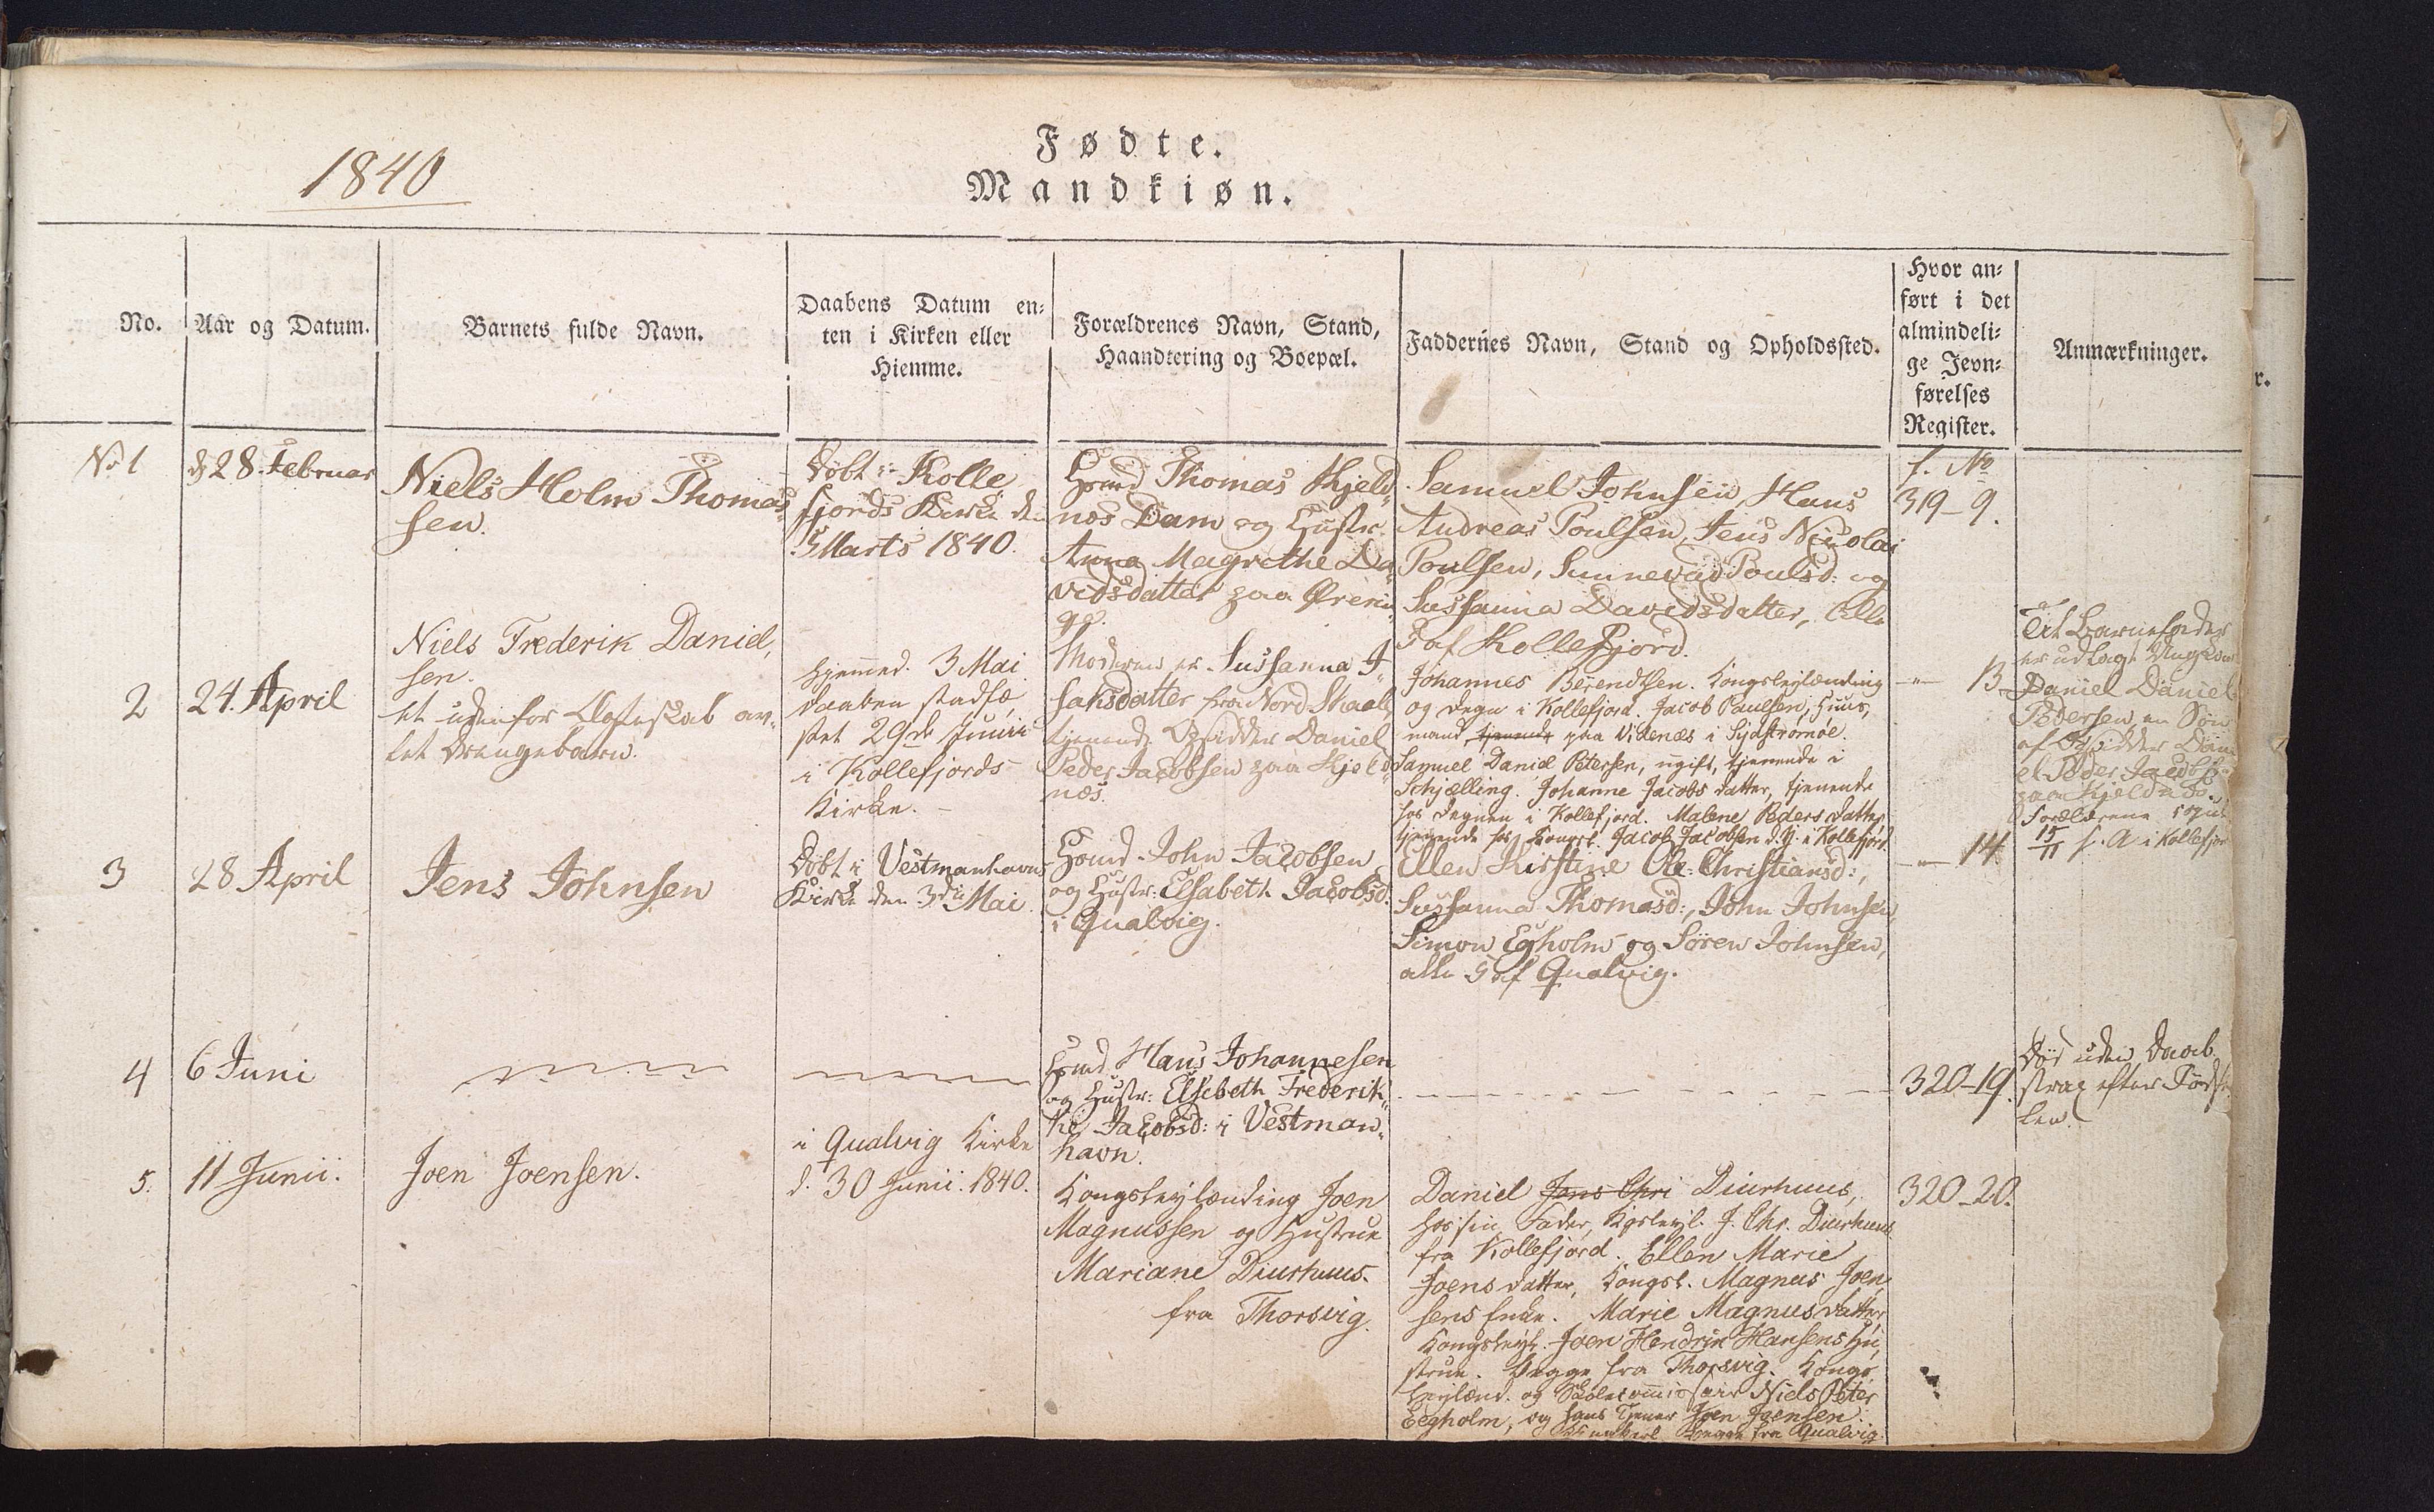 1840
Fødte.
Mandkiøn.
No.
Aar og Datum.
Barnets fulde Navn.
Daabens Datum en-
ten i Kirken eller
Hiemme.
Forældrenes Navn, Stand,
Haandtering og Boepæl.
Faddernes Navn, Stand og Opholdssted.
Hvor an-
ført i det
almindeli-
ge Jevn-
førelses
Register.
Anmærkninger.
No 1
d 28. Februar
Niels Holm Thomas-
sen.
Døbt i Kolle
fjords Kirke den
5 Marts 1840.
Thomas Kjeld
næs Dam og Hustr.
Anna Magrethe Da
vidsdatter paa Ørerin
ge.
Samuel Johnsen, Hans
Andreas Poulsen, Jens Nicolai
Poulsen, Sunneva Poulsd. og
Sussanna Davidsdatter, alle
5 af Kollefjord.
f. No
319-9.
2
24. April
Niels Frederik Daniel,
sen.
et udenfor Ægteskab av-
let Drengebarn.
hjemmed. 3 Mai
Daaben stadfæ,
stet 29de Junii
i Kollefjords
Kirke.
Moderen er Sussanna I-
saksdatter fra Nord Skaale,
tjenende Opsidder Daniel
Peder Jacobsen paa Kjeld
næs.
Johannes Berendtsen. Kongslejlænding
og Degn i Kollefjord. Jacob Paulsen, Huus,
mand tjenende paa Videnæs i Sydstrømøe.
Samuel Daniel Petersen, ugift, tjenende i
Schjælling. Johanne Jacobs datter, tjenende
hos Degnen i Kollefjord. Malene Peders datter
tjenende hos Kongsl. Jacob Jacobsen d. y. i Kollefjord.
-"- 13
Til Barnefader
er udlagt Ungkarl
Daniel Daniel
Pedersen, en Søn
af Opsidder Dani
el Peder Jacobs
paa Kjeldnæs.
Forældrene
15/11 f. A i Kollefjor
3
28 April
Jens Johnsen
Døbt i Vestmanhavns
Kirke den 3die Mai
John Jacobsen
og Hustr: Elsabeth Jacobsd.
i Qualvig.
Ellen Kirstine Ole-Christiansd:,
Sussanna Thomasd:, John Johnsen,
Simon Egholm og Søren Johnsen,
alle 5 af Qualvig.
-"- 14
4
6 Juni
Hans Johannesen
og Hustr: Elsebeth Frederik-
ke Jacobsd: i Vestman-
havn.
320-19.
Død uden Daab
strax efter Føds
len.
5.
11 Junii.
Joen Joensen.
i Qualvig Kirke
d. 30 Junii. 1840.
Kongslejlænding Joen
Magnussen og Hustrue
Mariane Diurhuus.
fra Thorsvig.
Daniel Jens Chri Diurhuus,
hos sin Fader, Kgslejl. J. Chr. Diurhuus
fra Kollefjord. Ellen Marie
Joens datter, Kongsl. Magnus Joen
sens Enke. Marie Magnus datter
Kongslejl. Joen Hendrik Hansens Hu,
strue. Begge fra Thorsvig. Kongs
lejlænd. og Niels Peter
Eegholm, og hans Tjener Joen Joensen.
Begge fra Qualvig.
320-20.